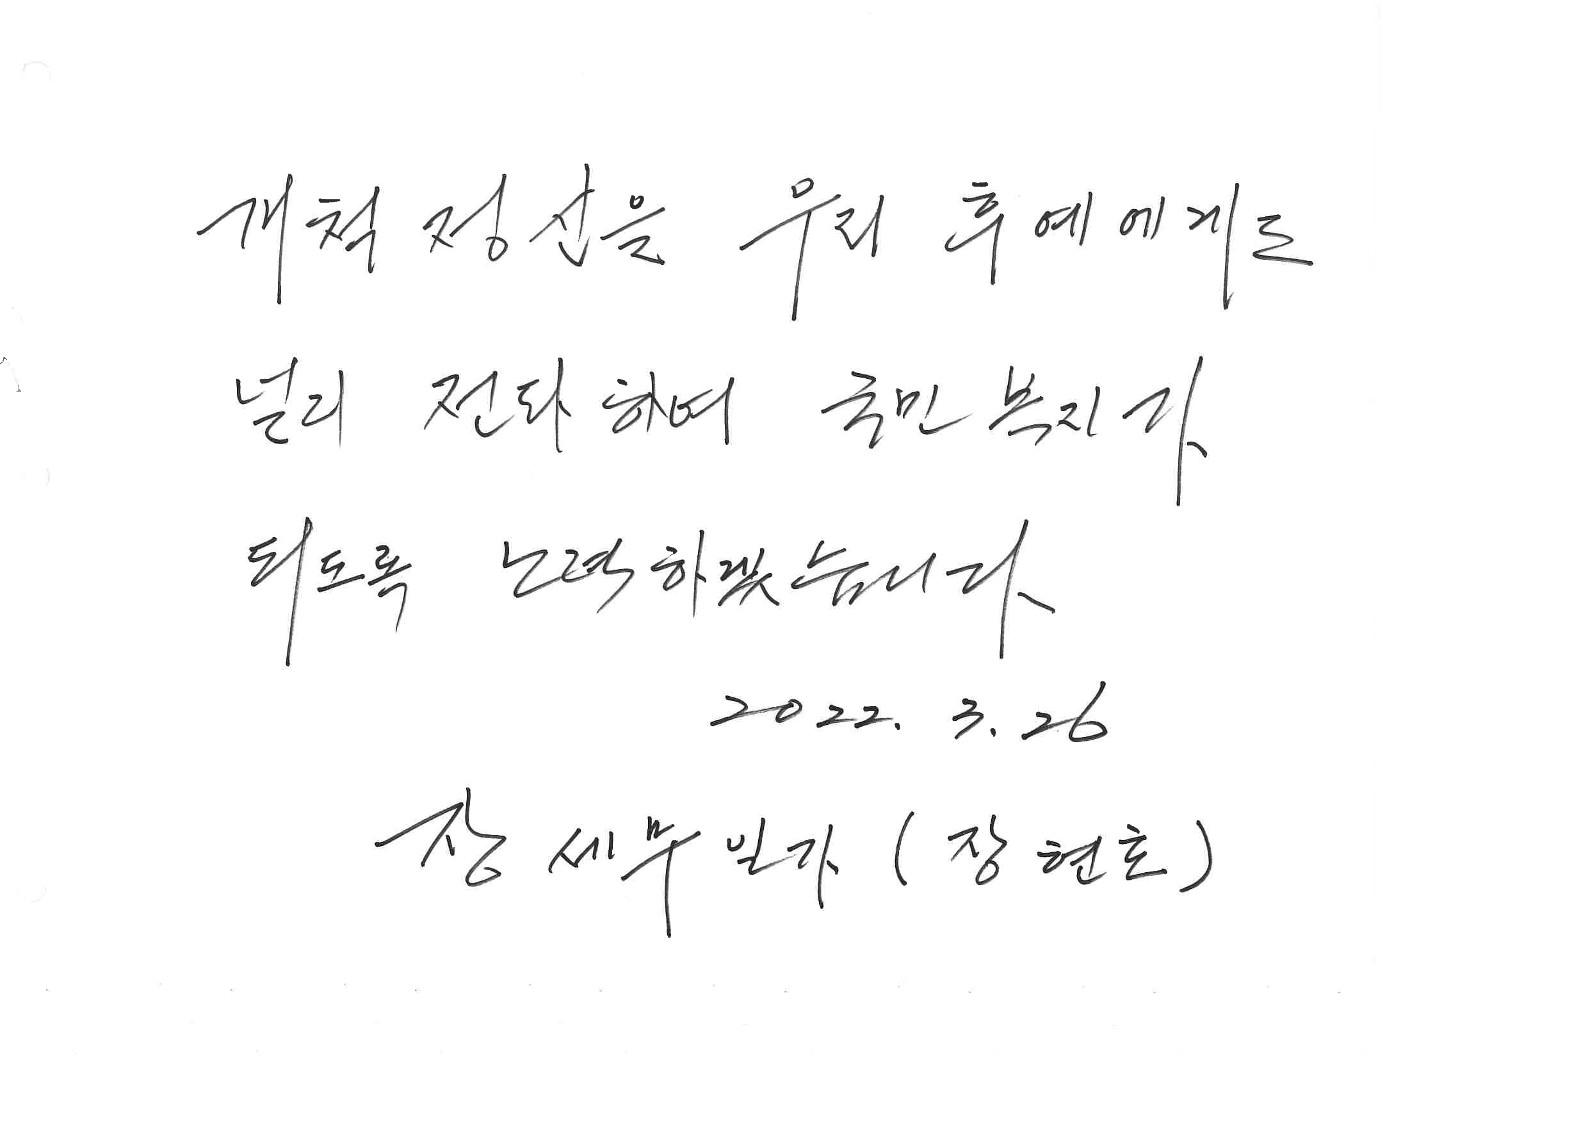 개척 정신을 우리 후예에게도
널리 전파하여 국민 복지가
되도록 노력하겠습니다.
2022. 3. 26
장 세무 일가 (장현호)